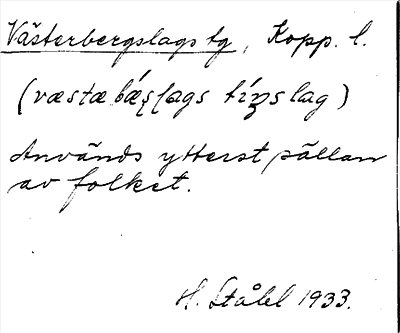 Västerbergslags tg, Kopp. l.
(væstæbǽʂlags tíŋslag)
Används ytterst sällan
av folket.
H. Ståhl 1933.